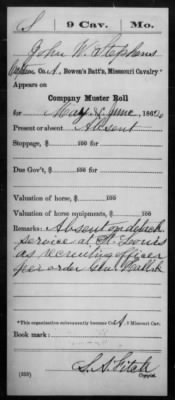 S | 9 Cav. | Mo.
John W. Stephens
Captain, Co. A, Bowen's Batt'n, Missouri Cavalry*
Appears on
Company Muster Roll
for May & June, 1862
Present or absent Absent
Stoppage, $ 100 for
Due Gov't, $ 100 for
Valuation of horse, $ 100
Valuation of horse equipments, $ 100
Remarks: Absent on detach
service at St. Louis
as recruiting officer
per order Genl Halleck
*This organization subsequently became Co. A, 9 Missouri Cav.
Book mark:
Copyist.